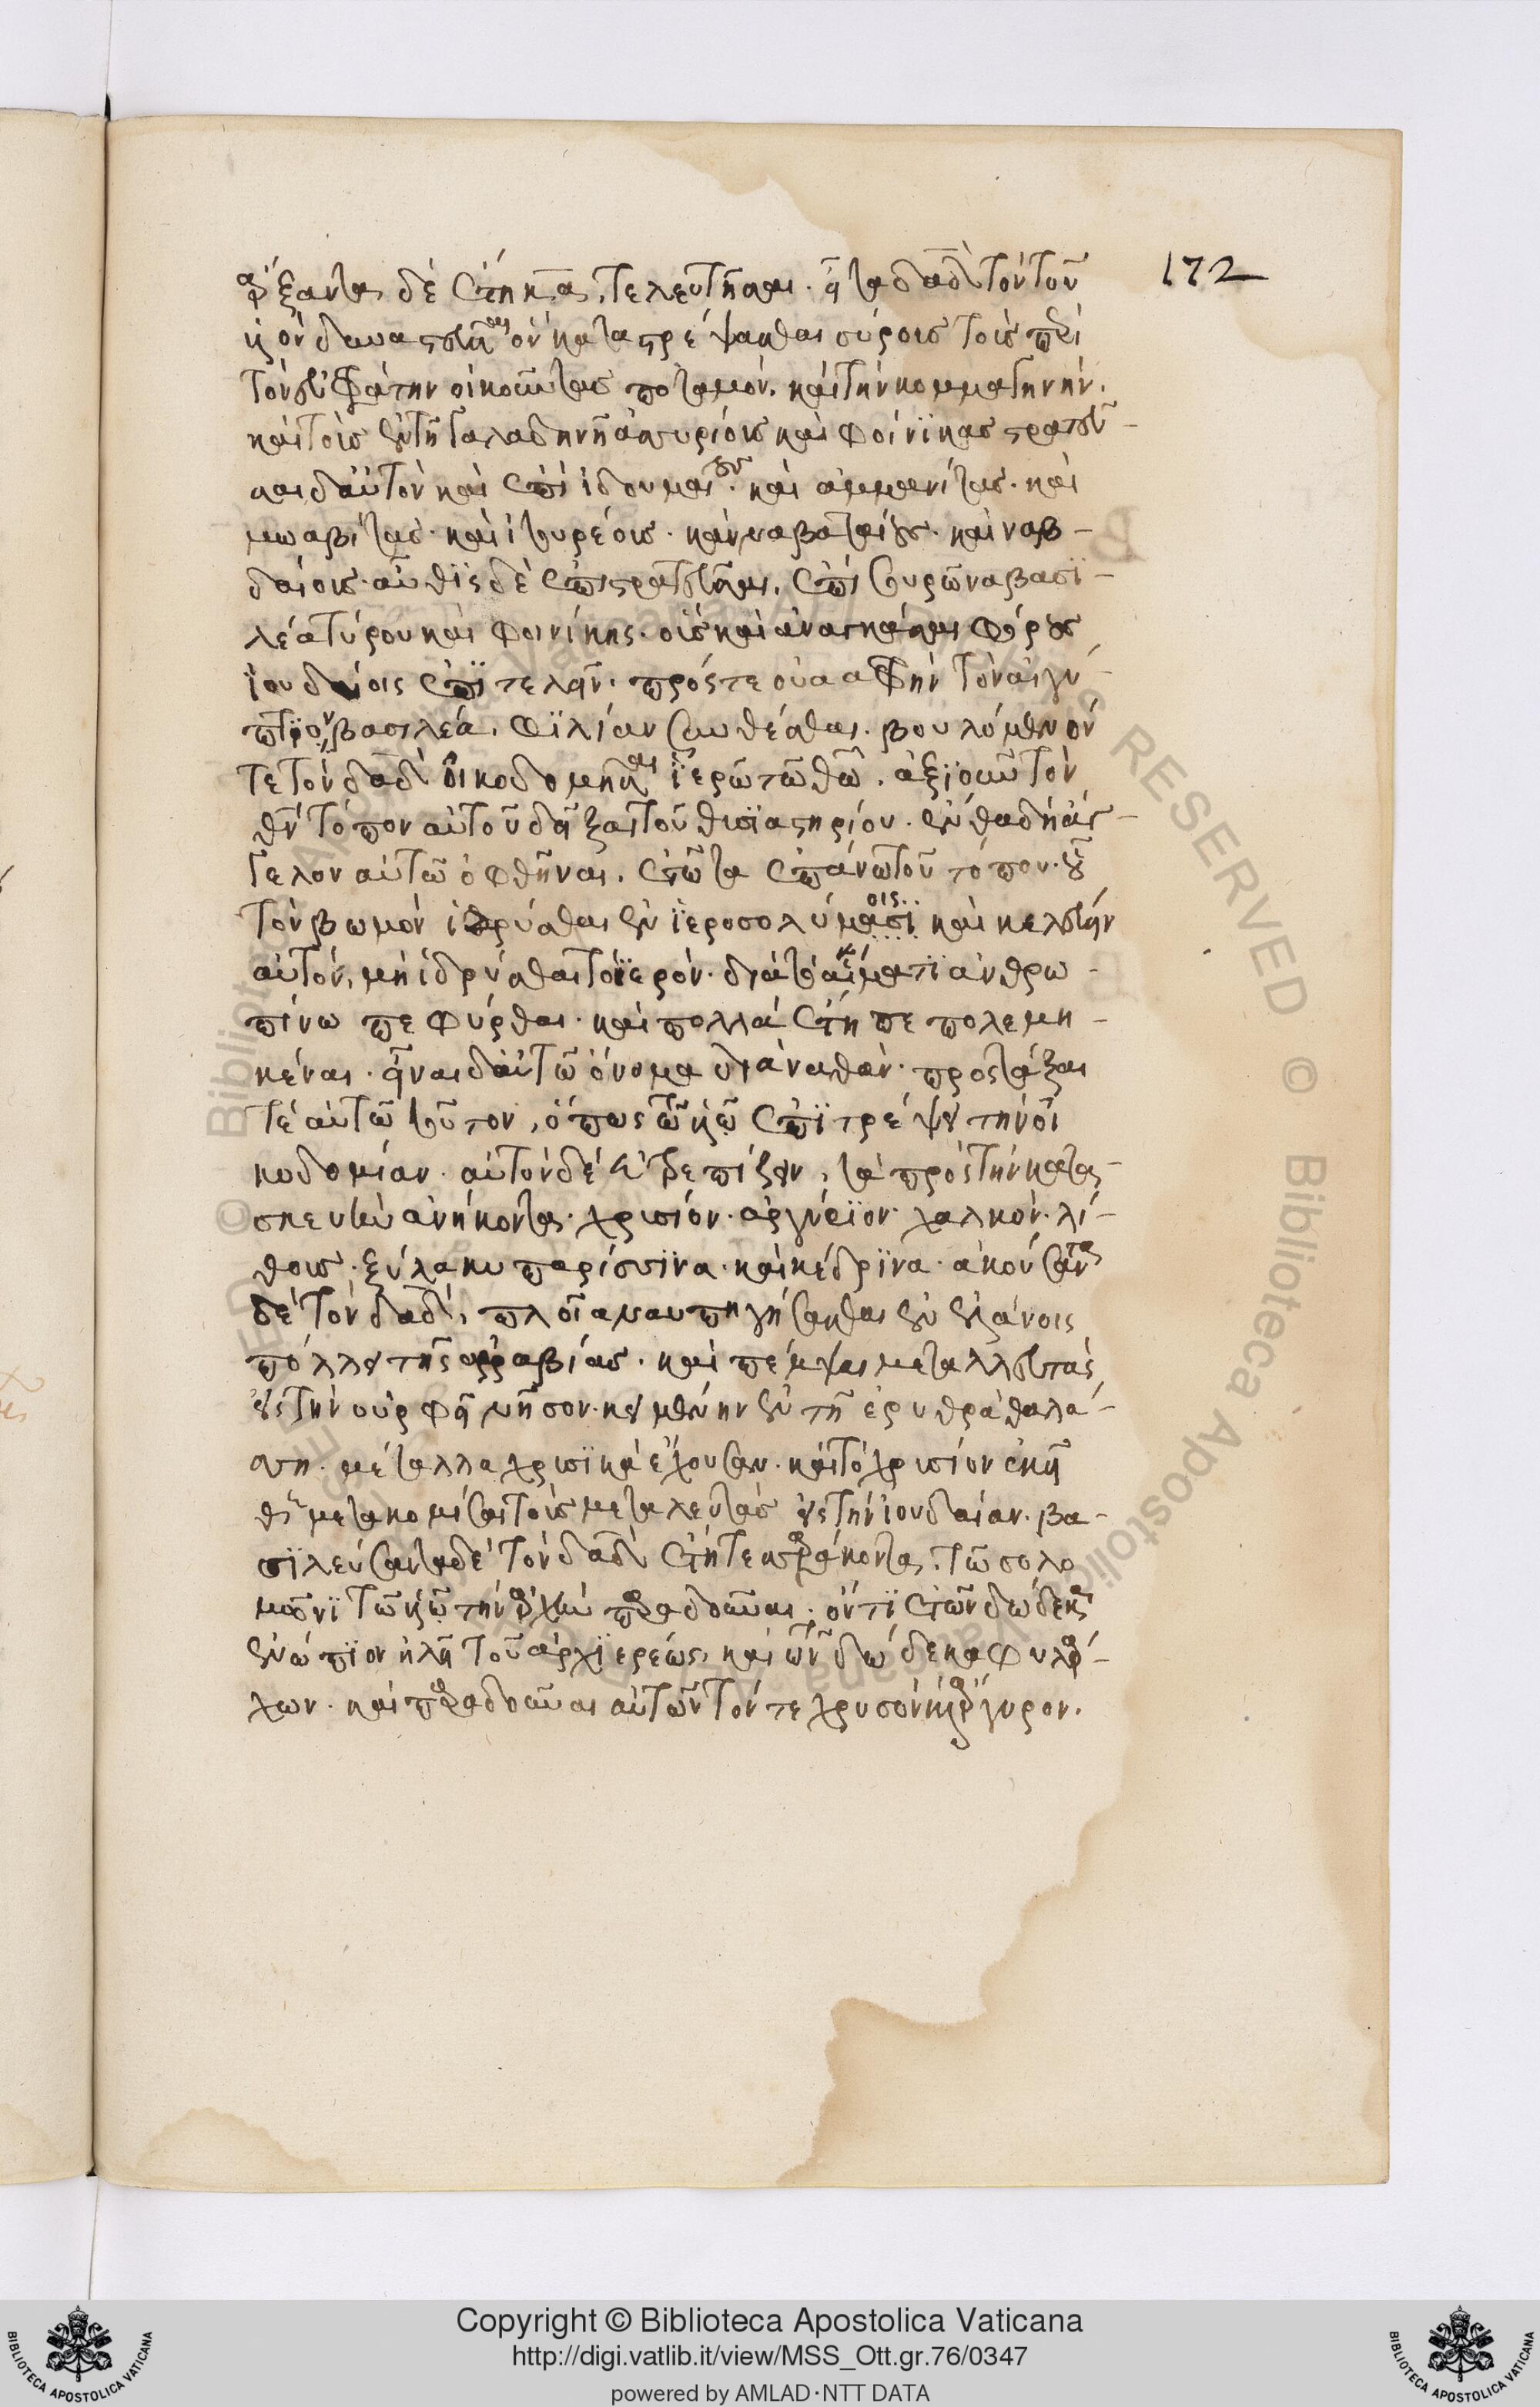 ἄρξαντα δὲ ἔτη κα, τελευτῆσαι. εἶτα δαδ τὸν τοῦ 172
ὃν καταστρέψασθαι σύρους τοὺς παρὰ
τὸν εὐφράτην οἰκοῦντας ποταμόν. καὶ τὴν κομμαγηνήν.
καὶ τοὺς ἐν τῆ γαλαδηνῆ ἀσσυρίους καὶ φοίνϊκας στρατεῦ-
σαι δ' αὐτὸν καὶ ἐπὶ ἰδουμαίους. καὶ ἀμμανίτας. καὶ
μωαβίτας. καὶ ἰτυρέους. καὶ ναβαταίους. καὶ ναβ-
δαίους. αὖθϊς δὲ ἐπιστρατεῦσαι, ἐπὶ συρῶνα βασϊ-
λέα τύρου καὶ φοινίκης. οὓς καὶ ἀναγκάσαι φόρους
ϊουδαίοις ἐπϊτελεῖν. πρός τε οὐαφρὴν τὸν αἰγύ-
πτϊον βασιλέα, φϊλίαν συνθέσθαι. βουλόμενόν
τε τὸν δαδ οἰκοδομῆσαι ϊερὸν τῶ θω. ἀξϊοῦν τὸν
θν τόπον αὐτοῦ δεῖξαι τοῦ θυσϊαστηρίου. ἔνθα δὴ ἄγ-
γελον αὐτῶ ὀφθῆναι, ἑστῶτα ἐπάνω τοῦ τόπου. οὗ
τὸν βωμὸν ἱδρύσθαι ἐν ϊεροσολύμοις καὶ κελεύειν
αὐτὸν, μὴ ἱδρύσθαι τὸ ϊερόν. διὰ τὸ αἵματϊ ἀνθρω-
πίνω πεφύρθαι. καὶ πολλὰ ἔτη πεπολεμη-
κέναι. εἶναι δ' αὐτῶ ὄνομα διαναθάν. προστάξαι
τὲ αὐτῶ τοῦτον, ὅπως τῶ υἱῶ ἐπϊτρέψη τὴν οἰ
κοδομίαν. αὐτὸν δὲ εὐτρεπίζειν, τὰ πρὸς τὴν κατα-
σκευὴν ἀνήκοντα. χρυσίον. ἀργύρϊον. χαλκόν. λί-
θους. ξύλα κυπαρίσσϊνα. καὶ κέδρϊνα. ἀκούσαντα
δὲ τὸν δαδ, πλοῖα ναυπηγήσασθαι ἐν ἐλάνοις
πόλει τῆς ἀρραβίας. καὶ πέμψαι μεταλλευτὰς
εἰς τὴν οὐρφῆ νῆσον. κειμένην ἐν τῆ ἐρυθρᾶ θαλά-
σση. μέταλλα χρυσϊκὰ ἔχουσαν. καὶ τὸ χρυσίον ἐκεῖ
θεν μετακομίσαι τοὺς μεταλευτὰς εἰς τὴν ἰουδαίαν. βα-
σϊλεύσαντα δὲ τὸν δαδ ἔτη τεσσαράκοντα, τῶ σολο
μῶνϊ τῶ υἱῶ τὴν ἀρχὴν παραδοῦναι. ὄντϊ ἐτῶν δώδεκα
ἐνώπϊον ἠλεῖ τοῦ ἀρχϊερέως, καὶ τῶν δώδεκα φυλάρ-
χων. καὶ παραδοῦναι αὐτῶ τόν τε χρυσὸν καὶ ἄργυρον.
Copyright © Biblioteca Apostolica Vaticana
http://digi.vatlib.it/view/MSS_Ott.gr.76/0347
powered by AMLAD·NTT DATA